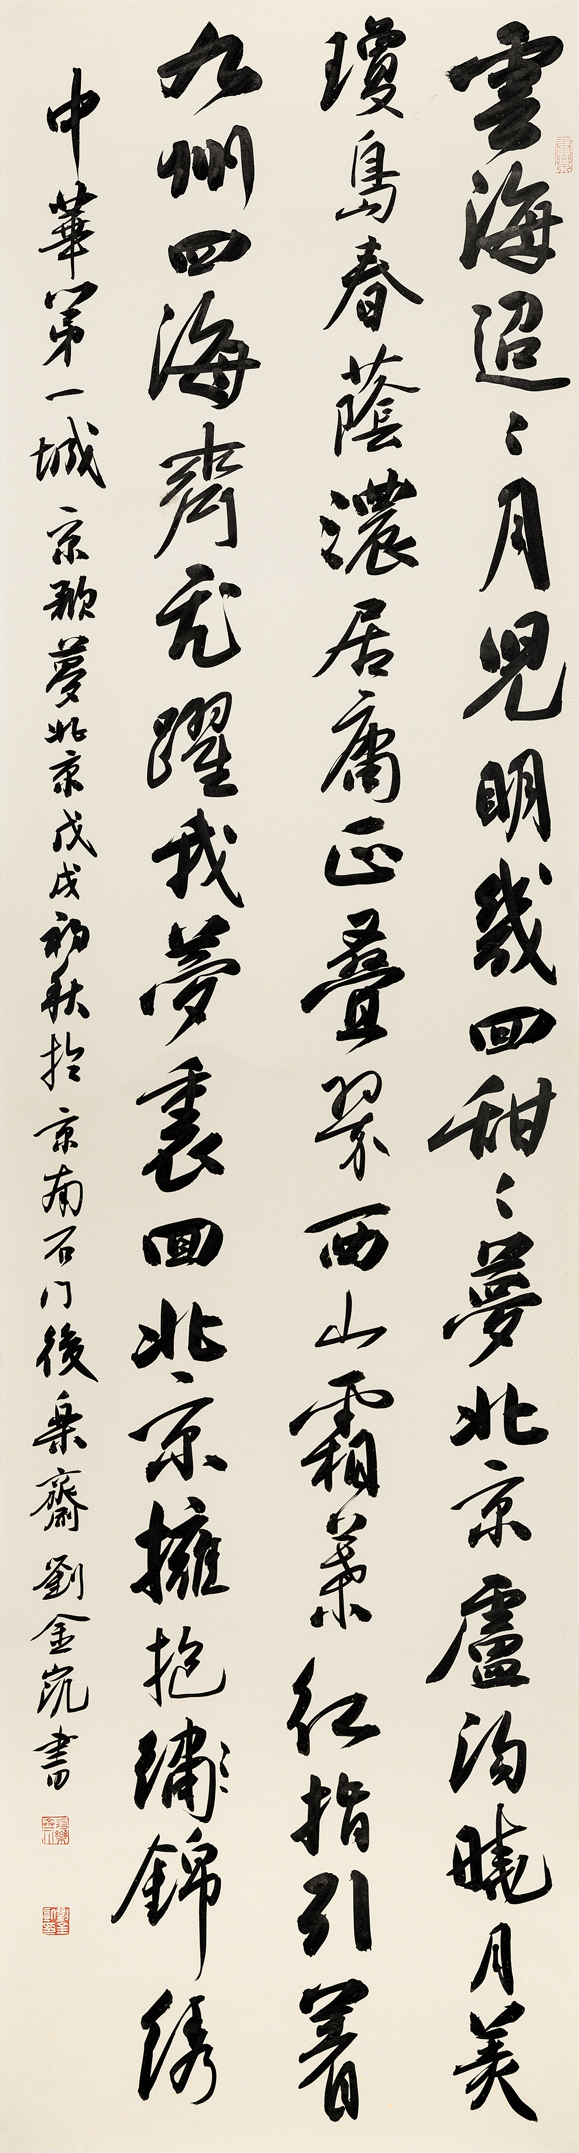 雲海迢〻月兒明幾回甜〻夢北京盧沟曉月美
瓊島春蔭濃居庸正疊翠西山霜葉紅指引着
九州四海齊飛躍我夢裏回北京擁抱錦綉
中華第一城 京歌夢北京戊戌初秋於京南石门後樂齋 劉金凱書